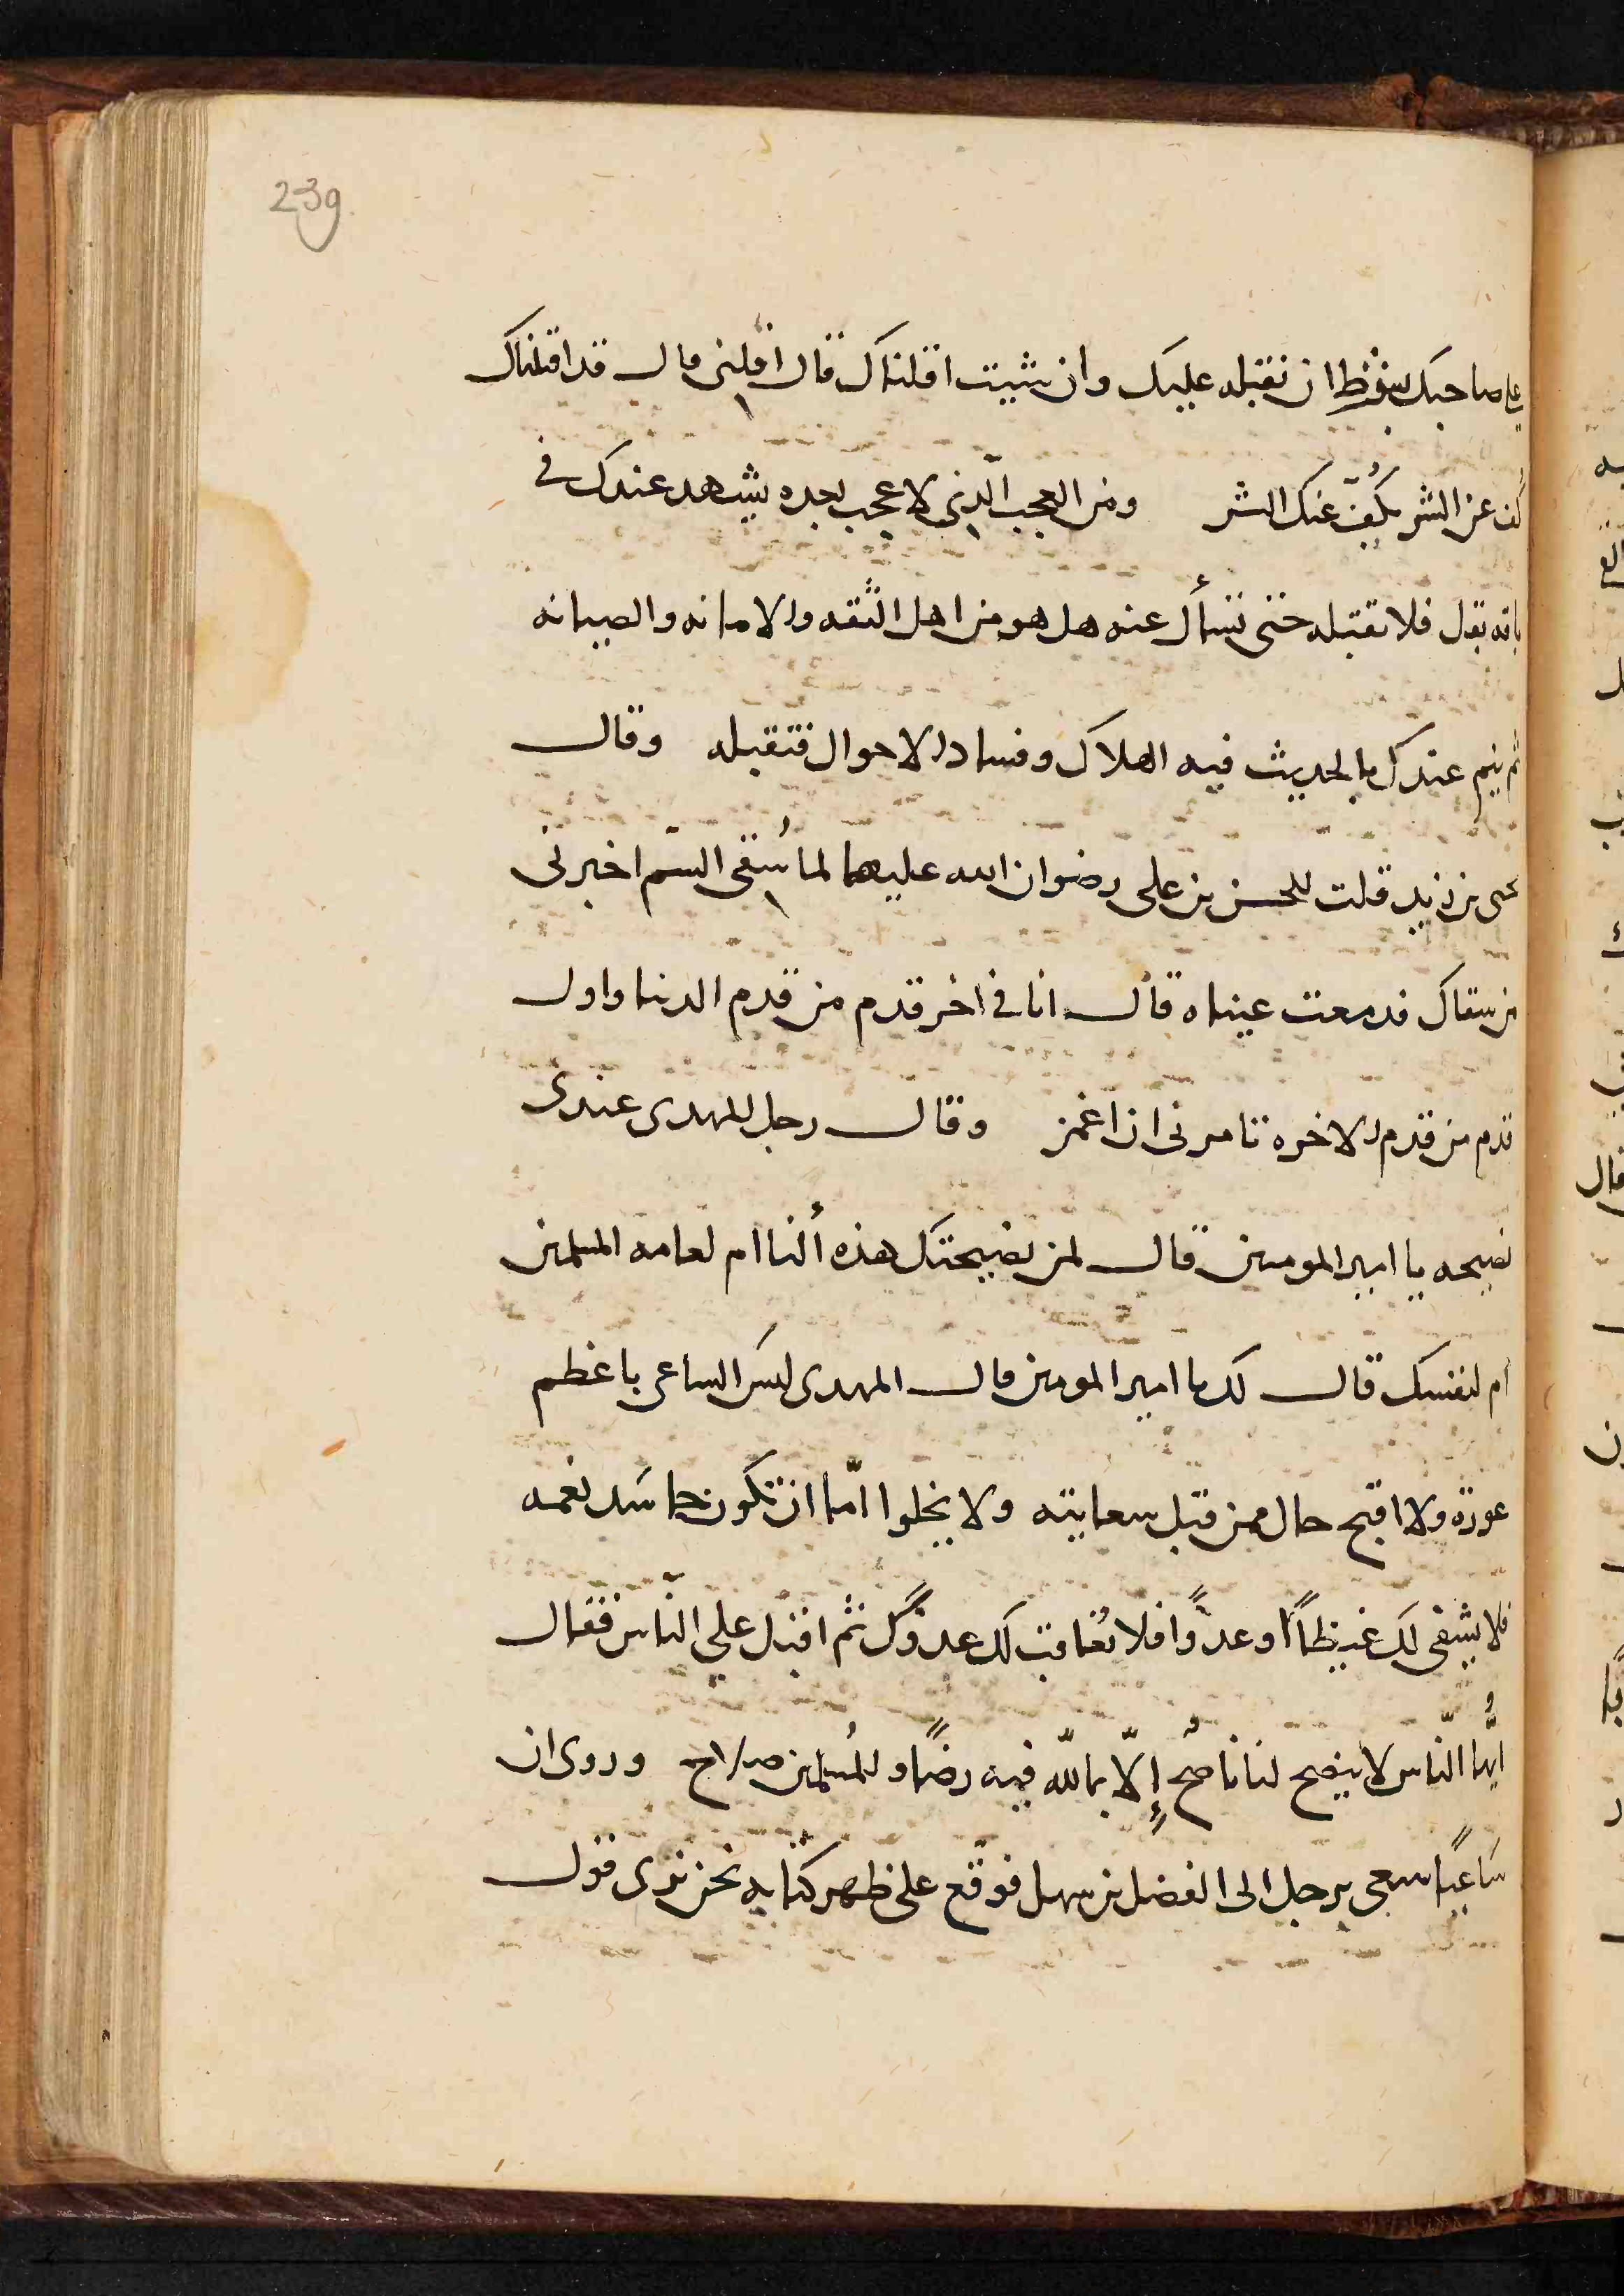 239
على صاحبك بشرط ان نقبله عليك وان شيت اقلناك قال اقلنى قال قد اقلناك
كف عن الشر يكُفّ عنك الشر ومن العجب الّذى لا عجب بعده يشهد عندك فى
باقه بقل فلا تقبله حتى تسأل عنه هل هو من اهل الثقه والامانه والصيانه
ثم ينم عندك بالحديث فيه الهلاك وفساد الاحوال فتقبله وقال
بن زيد قلت للحسن بن على رضوان الله عليهما لما سُقى السّم اخبرنى
من سقاك فدمعت عيناه قال انا فى اخر قدم من قدم الدنيا واول
قدم من قدم الاخره تامرنى ان اغمز وقال رجل للمهدى عندى
نصيحه يا امير المومنين قال لمن نصيحتك هذه ألنا ام لعامه المسلمين
ام لنفسك قال لك يا امير المومنين قال المهدى ليس الساعى باعظم
عورة ولا اقبح حال ممن قبل سعايته ولا يخلوا امّا ان تكون حاسد نعمه
فلا يشفى لك غيظاً او عدوًّا فلا نُعاقب لك عدوّك ثم اقبل على النّاس فقال
ايُّها النّاس لا ينصح لنا ناصحٌ إلّا بما للّه فيه رضًا وللمُسلمين صلاح وروى ان
سَاعيًا سعى برجل الى الفضل بن سهل فوقّع على ظهر كتابه نحن نرى قول